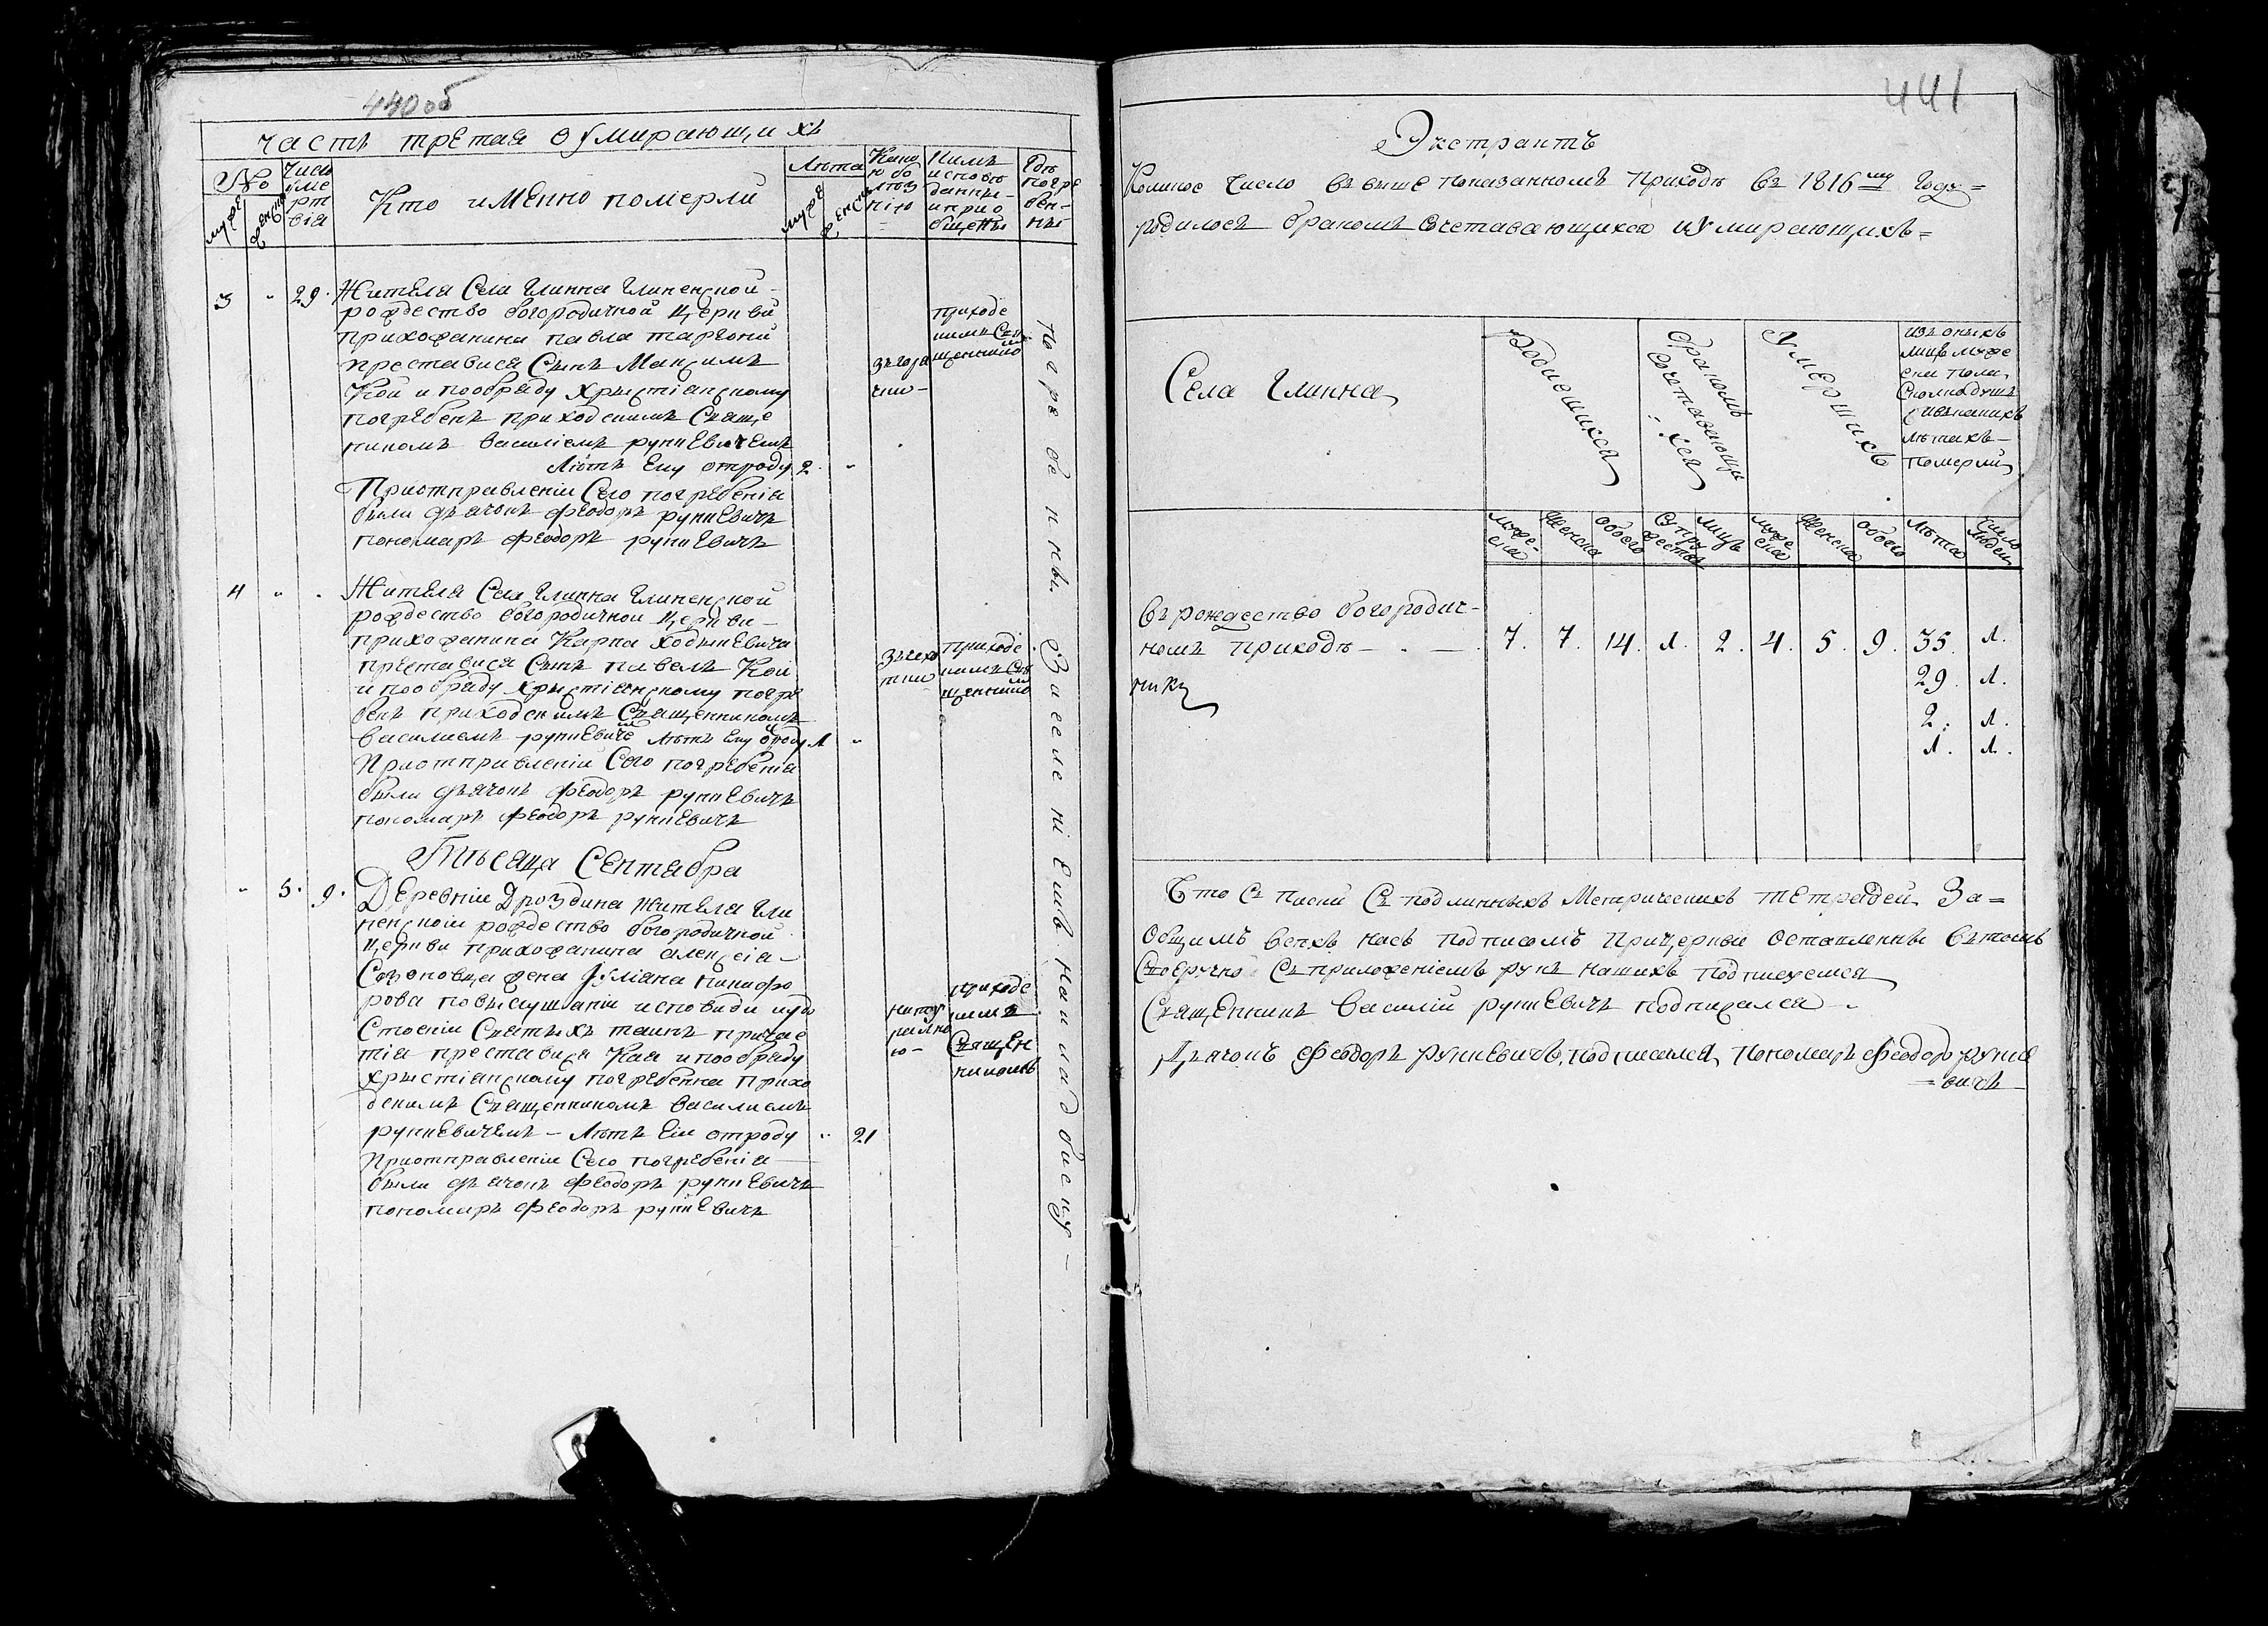 440об
Часть третая О умирающихъ
№
мужс
женска
Число
уме
рт
вія
Кто именно померли
Лѣта
мужс
женска
Какою
болѣз
нію
Кимъ
исповѣ
данны
и прио
бщены
Гдѣ
погре
бен-
ны
3 " 29. Жителя Села Глинна Глиненской
рождество богородичной Церкви
прихожанина павла
преставися Сынъ Максимъ
Кой и пообряду Христіанскому
погребенъ приходскимъ Сваще
никомъ Василіемъ рункевичемъ
Лѣтъ Ему отроду 2. "
Приотправленіи Сего погребенія
были дьячокъ Феодоръ рункевичъ
пономаръ Феодоръ рункевичъ
приходс
кимъ Свя
щенником
погребенны Заселеніемъ на кладбиску
4 " . Жителя Села Глинна Глиненской
рождество богородичной Церкви
прихожанина Карпа Ходыневича
преставися Сынъ павелъ Кои
и пообряду христіанскому погре
бенъ приходскимъ Священникомъ
василиемъ рункевичемъ лѣтъ Ему отроду 1 "
Приотправленіи Сего погребенія
были дьячокъ Феодоръ рункевичъ
пономаръ Феодоръ рункевичъ
приходс
кимъ Свя
щенником
Мѣсяца Сентабра
" 5. 9. Деревніи Дроздина жителя Гли
ненскоіи рождество богородичной
Церкви прихожанина алексіа
жена Юліана никифо
рова повыслушаніи исповиди иудо
Стоеніи Святыхъ таинъ причас
тіа преставися Кая и пообряду
христіанскому погребенна прихо
дскимъ Священникомъ василиемъ
рункевичемъ – Лѣтъ Еіи отроду " 21
Приотправленіи Сего погребеніа
были дьячокъ Феодоръ рункевичъ
пономаръ Феодоръ рункевичъ
натур
ално
ю-
приходс
кимъ
Священ
никомъ
441
Экстрактъ
Коликое Число ввыше показанномъ Приходѣ въ 1816му Году=
родилось бракомъ Сочетавающихся иУмирающихъ=
Села Глинна
Родившихся
Бракомъ
Сочетавающи
хся
Умершихъ
изъ оныхъ
лицъ муже
ска пола
Сколко душъ
лѣтахъ
померли
мужс-
ска
Женска
Обоего
Супру
жества
лицъ
муже
ска
Женска
Обоего
Лѣта
Число
людей
Въ рождество богородич-
номъ приходѣ 7. 7. 14. 1. 2. 4. 5. 9. 35. 1.
29. 1.
2. 1.
1. 1.
Что Съ писки Съ подлинныхъ Метрическихъ тетрадей За=
Общимъ всѣхъ насъ подписомъ Прицеркви Оставленны Втомъ
Своеручно Съприложеніемъ рукъ нашихъ подписуемся
Священникъ Василій рункевичъ подписался
Дьячокъ Феодоръ Рункевичъ подписался Пономаръ Феодоръ рунке
=вичъ